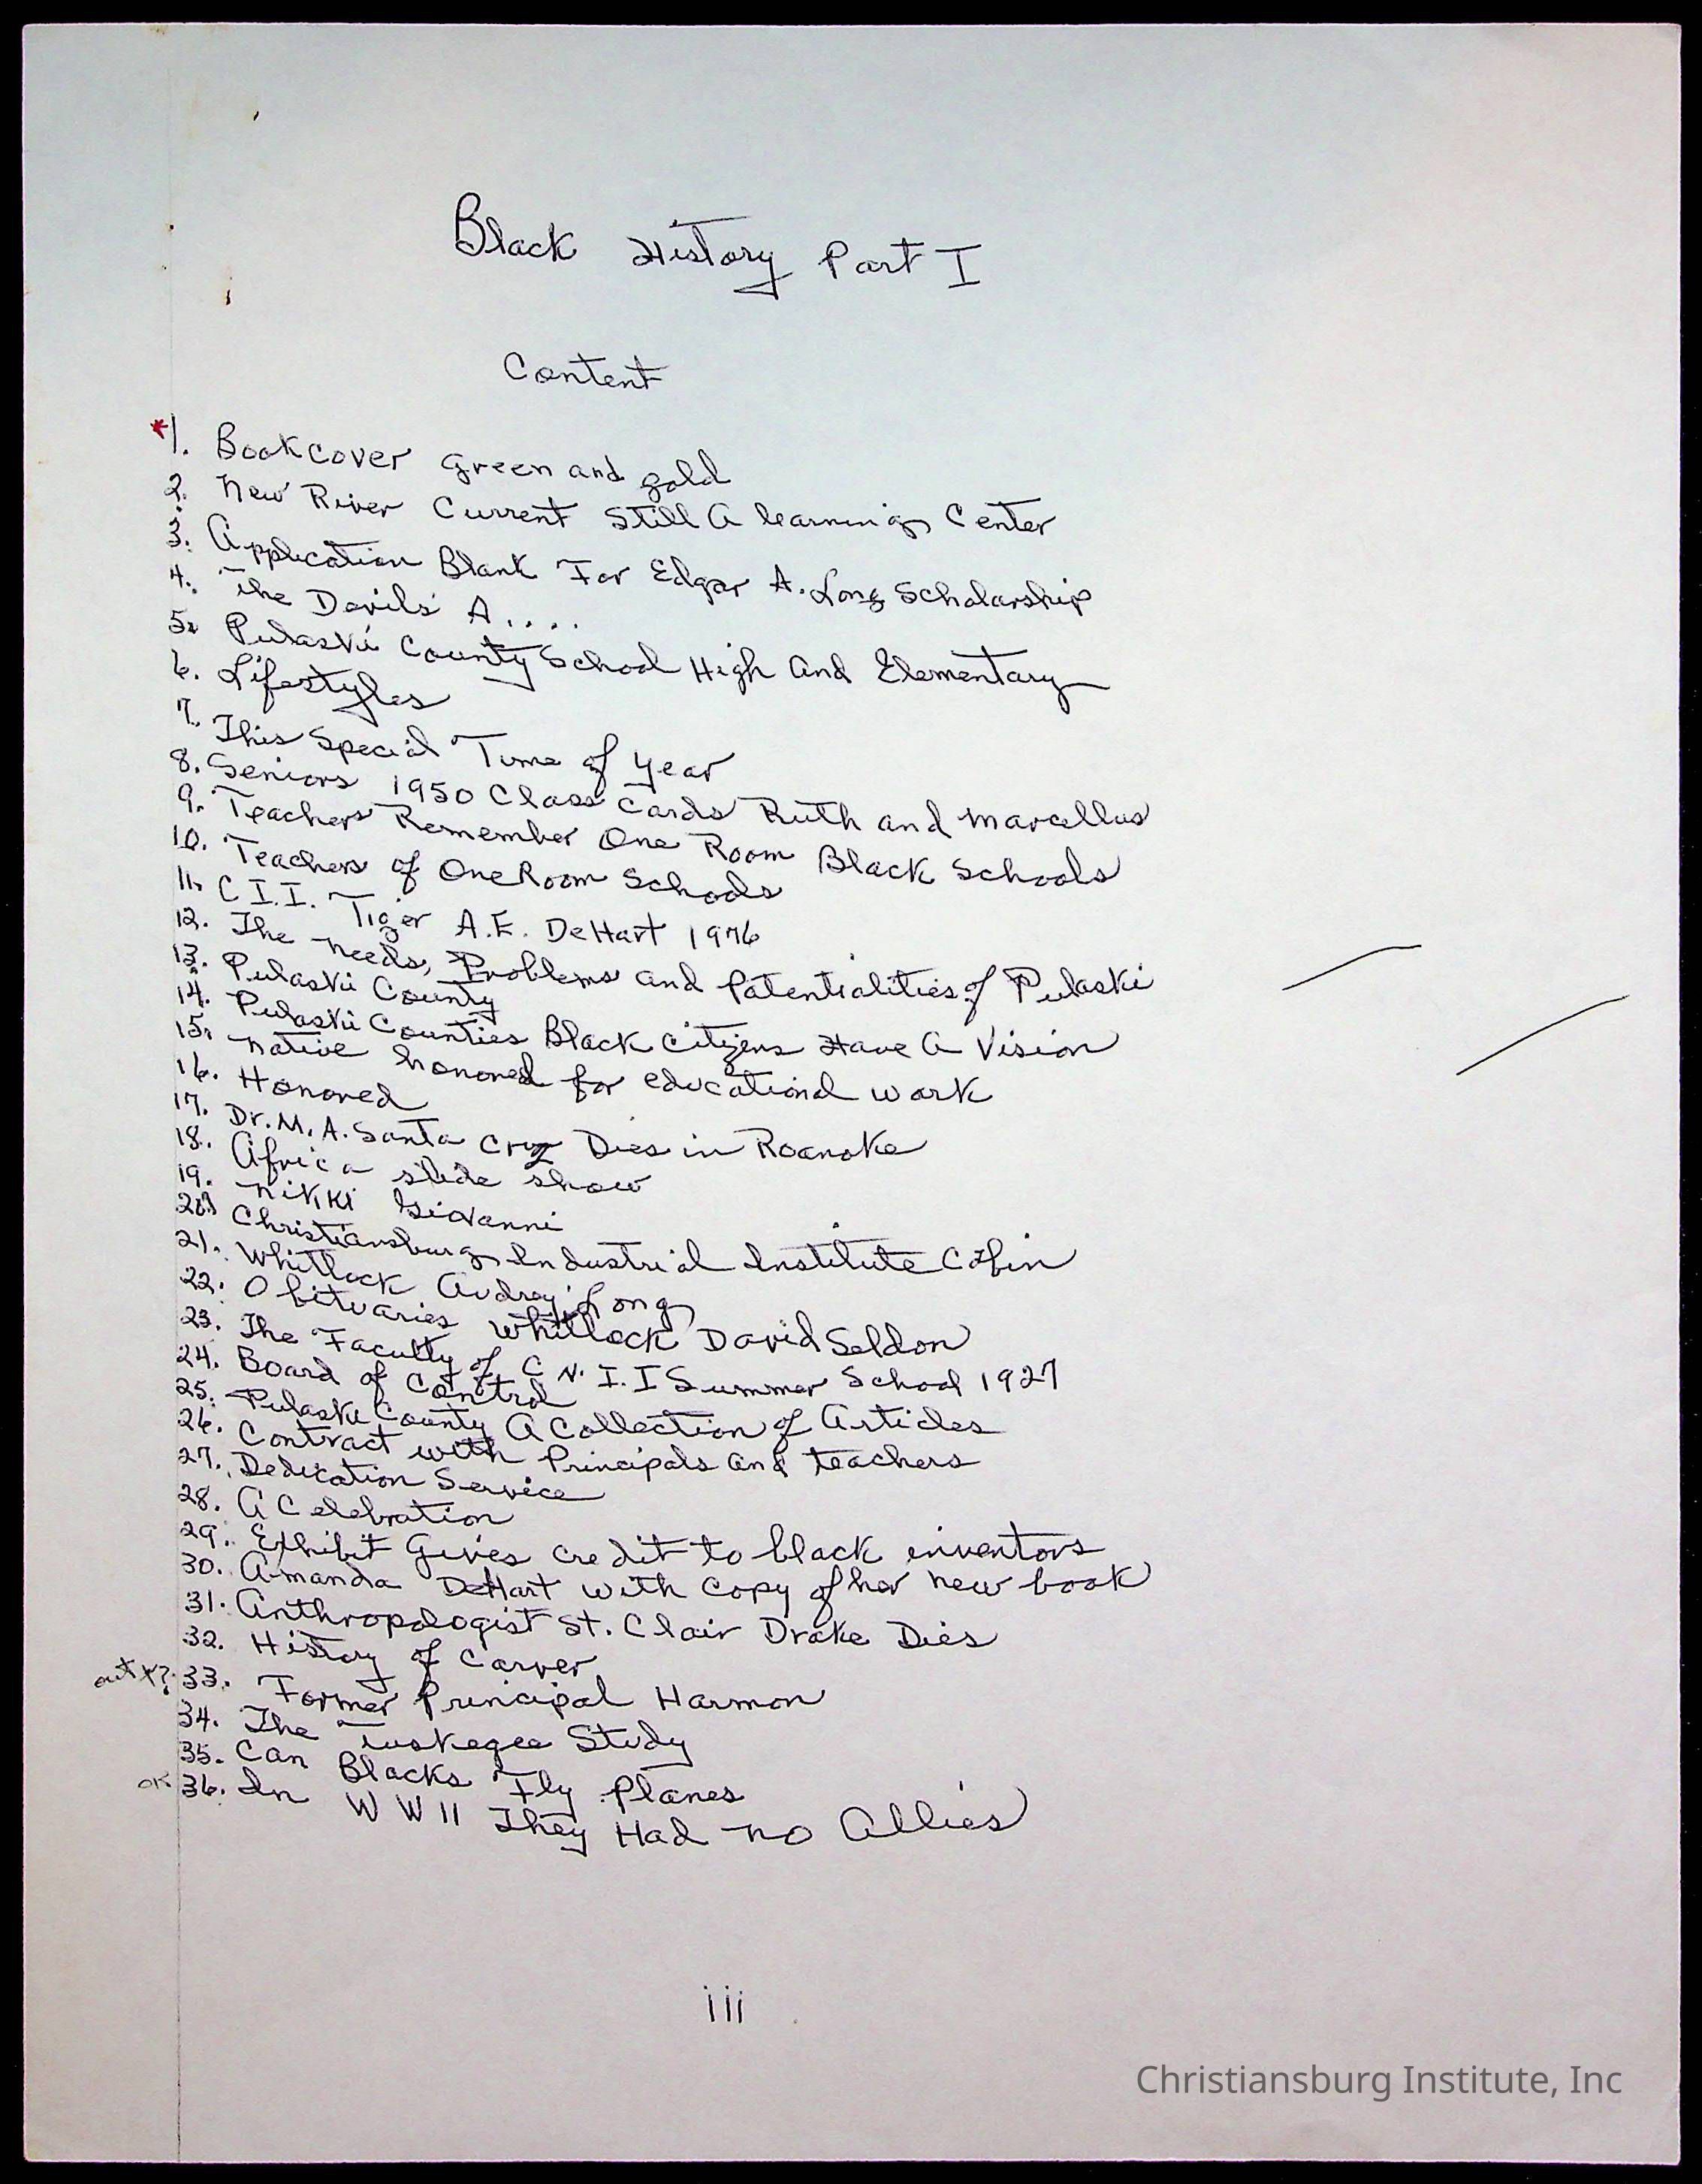 Black History Part I
Content
*1. Bookcover green and gold
2. New River Current Still A learning Center
3. Application Blank For Edgar A. Long Scholarship
4. The Devils A....
5. Pulaski County School High And Elementary
6. Lifestyles
7. This Special Time of year
8. Seniors 1950 Class Cards Ruth and Marcellus
9. Teachers Remember One Room Black Schools
10. Teachers of One Room Schools
11. C I.I. Tiger A.E. DeHart 1976
12. The Needs, Problems and Potentialities of Pulaski
13. Pulaski County
14. Pulaski Counties Black Citizens Have A Vision
15. Native honored for educational work
16. Honored
17. Dr. M. A. Santa Cruz Dies in Roanoke
18. Africa slide show
19. Nikki Giovanni
20. Christiansburg Industrial Institute Cabin
21. Whitlock Audrey Long
22. Obituaries Whitlock David Seldon
23. The Faculty of C N. I. I Summer School 1927
24. Board of Control
25. Pulaski County A Collection of Articles
26. Contract with Principals and teachers
27. Dedication Service
28. A Celebration
29. Exhibit Gives credit to black inventors
30. Amanda DeHart with copy of her new book
31. Anthropologist St. Clair Drake Dies
32. History of Carver
out *? 33. Former Principal Harmon
34. The Tuskegee Study
35. Can Blacks Fly Planes
OK 36. In W W II They Had no Allies
iii
Christiansburg Institute, Inc